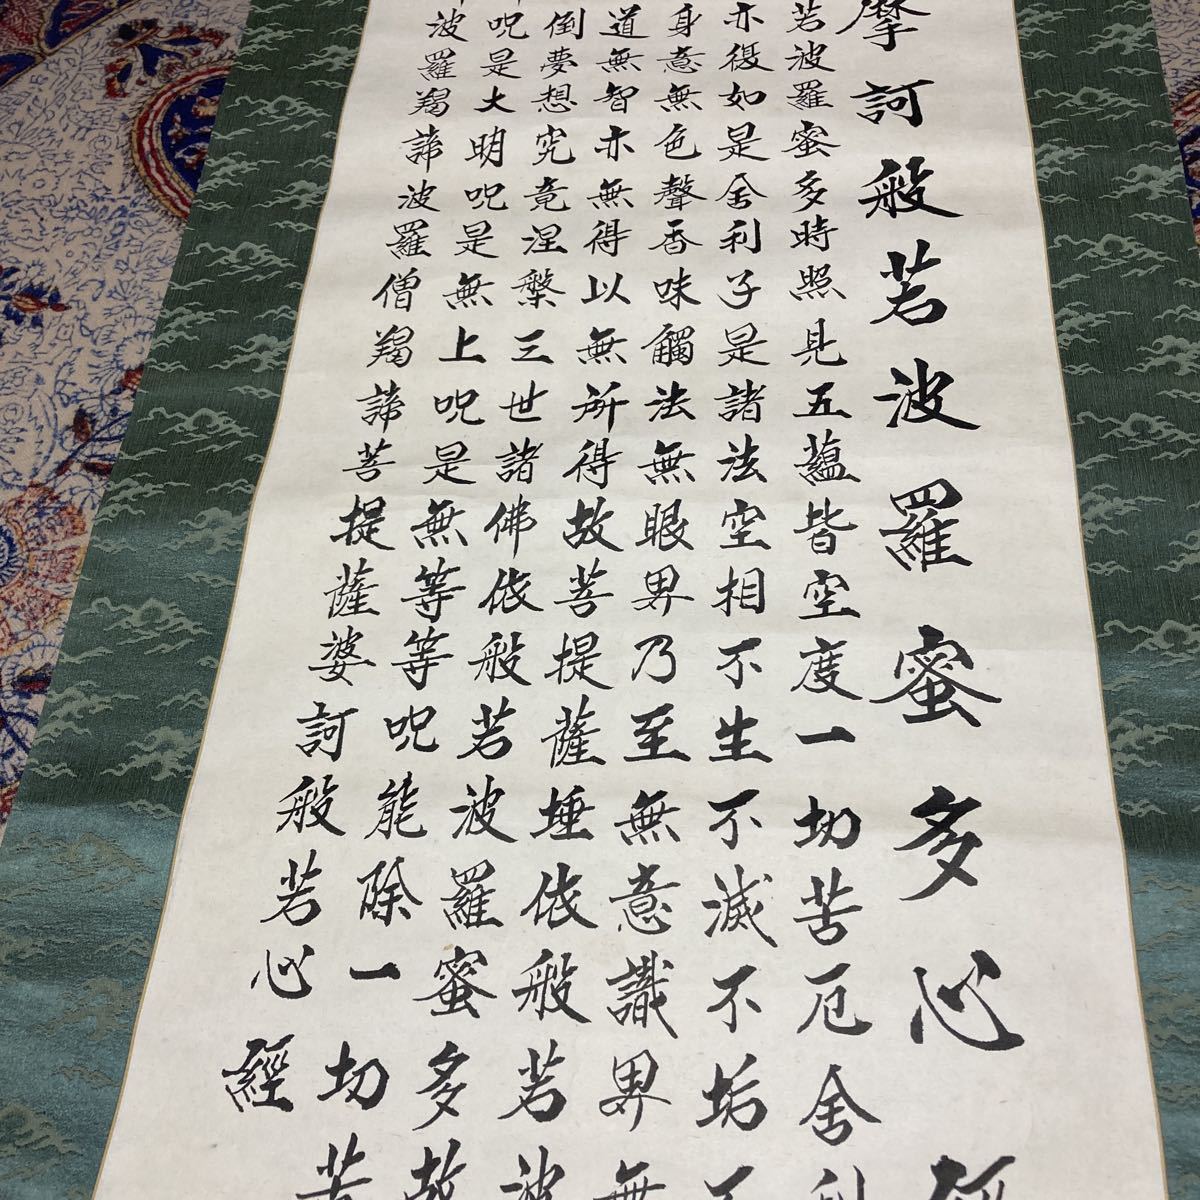 摩訶般若波羅蜜多心經
若波羅蜜多時照見五蘊皆空度一切苦厄舍利
亦復如是舍利子是諸法空相不生不滅不垢不
身意無色聲香味觸法無眼界乃至無意識界無
道無智亦無得以無所得故菩提薩埵依般若波
倒夢想究竟涅槃三世諸佛依般若波羅蜜多故
呪是大明呪是無上呪是無等等呪能除一切苦
波羅羯諦波羅僧羯諦菩提薩婆訶般若心經